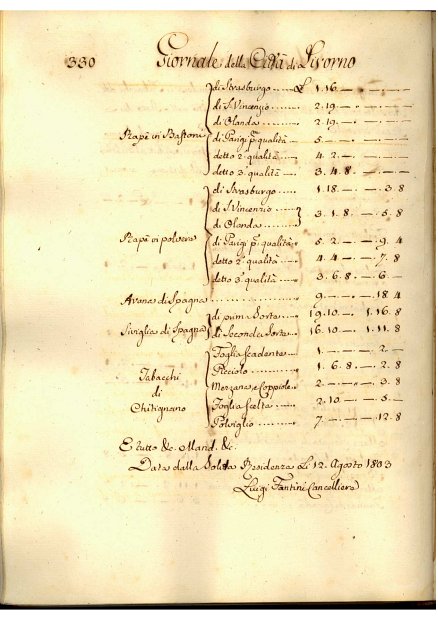 330 Giornale della Città di Livorno
di Strasburgo ...... £ 1.16.—.—.—.—
di S. Vincenzio ...... 2.19.—.—.—.—
di Olanda ...... 2.19.—.—.—.—
Rapè in Bastoni di Parigi p.ª qualità 5.—.—.—.—
detto 2.ª qualità ... 4.2.—.—.—.—
detto 3.ª qualità ... 3.4.8.—.—.—
di Strasburgo ...... 1.18.—.3.8
di S. Vincenzio ......
di Olanda ...... 3.1.8.—.5.8
Rapè in polvere di Parigi p.ª qualità 5.2.—.9.4
detto 2.ª qualità ... 4.4.—.7.8
detto 3.ª qualità ... 3.6.8.—6.—
Avana di Spagna ............ 9.—.—.18.4
di prima Sorta ... 19.10.—1.16.8
Siviglia di Spagna di Seconda Sorta ... 16.10.—1.11.8
Foglia Scadente ... 1.—.—.2.—
Picciolo ...... 1.6.8.—.2.8
Tabacchi Mezzana e Coppiole 2.—.—.3.8
di Foglia Scelta ...... 2.10.—.5.—
Chitignano Polviglio ...... 7.—.—.12.8
E tutto &c. Mand. &c.
Data dalla Solita Residenza Li 12. Agosto 1803
Luigi Fantini Cancelliere